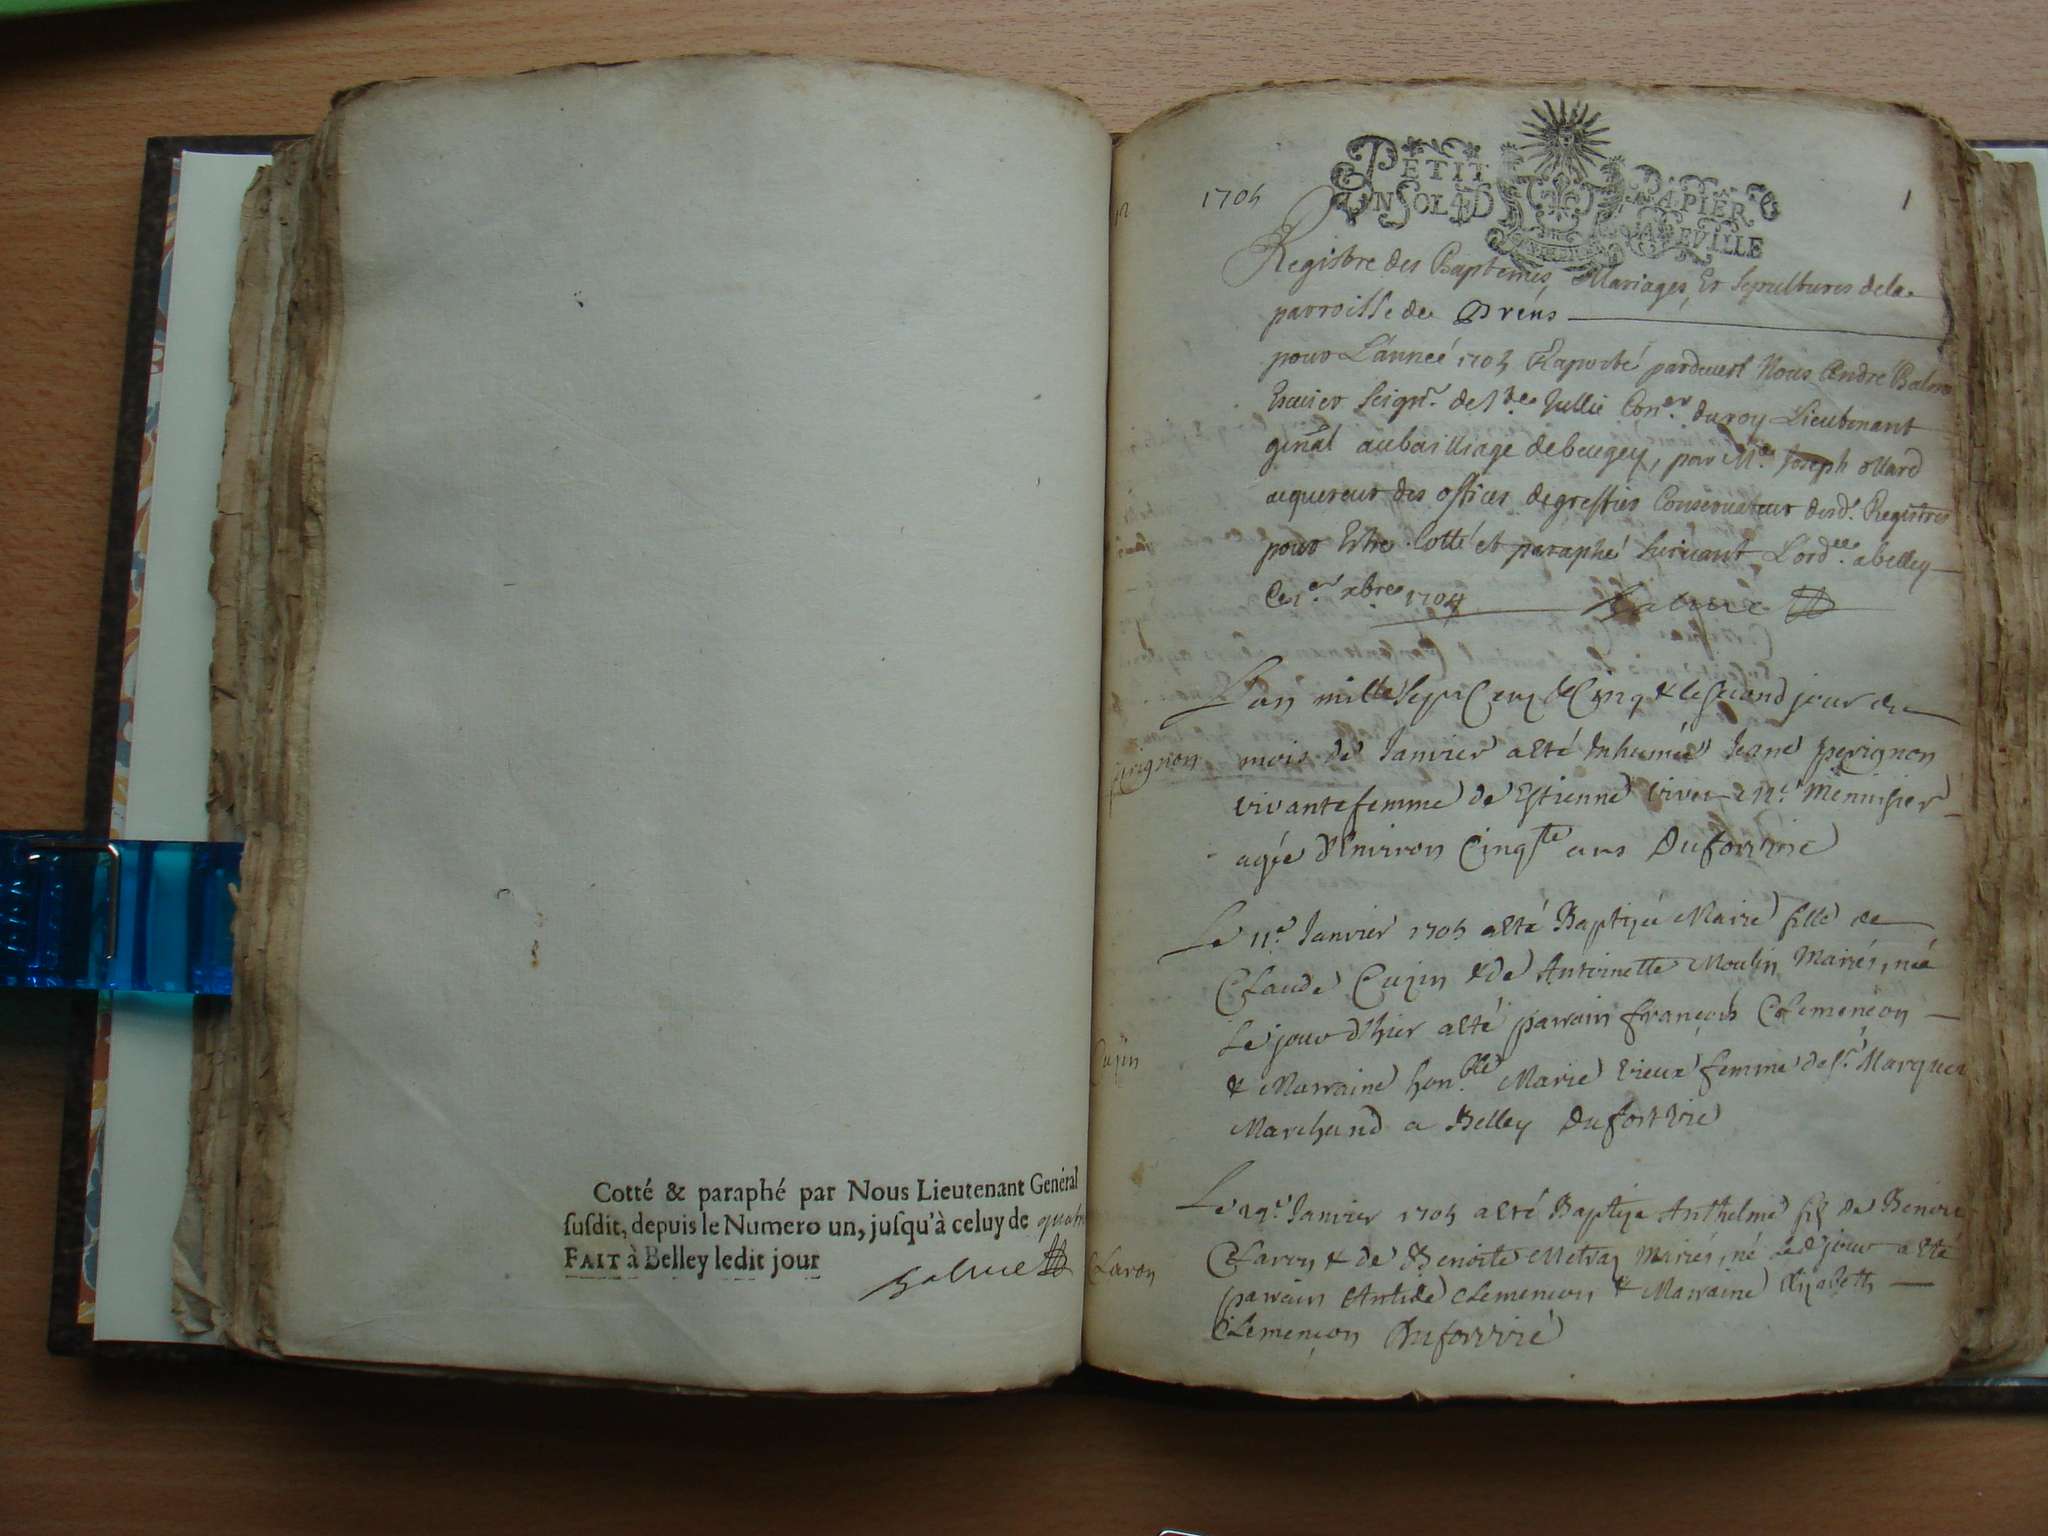 Cotté & paraphé par Nous Lieutenant General
susdit, depuis le Numero un, jusqu'à celuy de quatre
FAIT à Belley ledit jour
Balme
1705
1
PETIT PAPIER
UN SOL 4 D LA FEVILLE
Registre des Baptemes, Mariages, Et Sepultures dela
parroisse de Préns
pour L'anneé 1705 Raporté pardevert Nous André Balme
Escuier Seignr. de Jullie Coner. du roy Lieutenant
genãl au bailliage de beugey, par Me. Joseph ollard
acquereur des offices de greffier Conservateur desd. Registres
pour Estre Cotté et paraphé suivant L'ordce. a belley
Ce 1er. xbre 1704 Balme
L'an mille sept Cent & Cinq & le second jour du
perignon
mois de Janvier a esté Inhumée Jeane perignon
vivante femme de Estienne Mennisier
agée d'Environ Cinqte ans
Le 11e. Janvier 1705 a esté Baptizée Marie fille de
Claude Cuzin & de Antoinette Moulin Mariés, née
Le jour d'hier a esté parrain françois Clemençon
Cuzin
& Marraine honble. Marie vieux femme de sr.
Marchand a Belley
Le 29e. Janvier 1705 a esté Baptize Anthelme fils de
Claron & de Benoite Metraz Mariés, né led. jour a esté
Claron
parrain Clemencon & Marraine Elizabeth
Clemençon